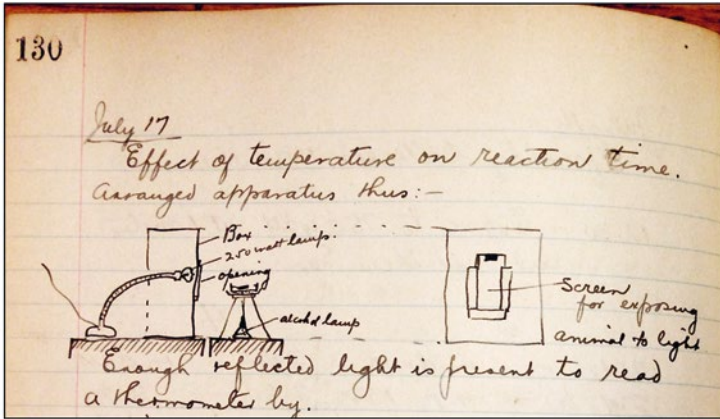 130
July 17
Effect of temperature on reaction time.
Arranged apparatus thus:—
Box
250 watt lamp.
opening
alcohol lamp
Screen
for exposing
animal to light
Enough reflected light is present to read
a thermometer by.